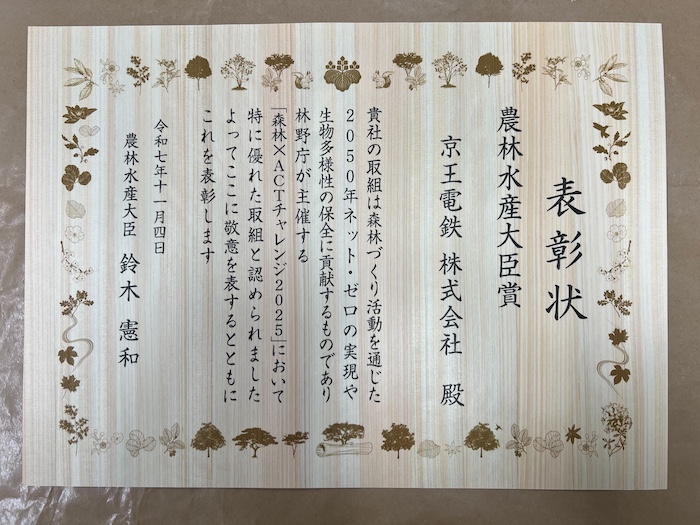 表彰状
農林水産大臣賞
京王電鉄 株式会社 殿
貴社の取組は森林づくり活動を通じた
2050年ネット・ゼロの実現や
生物多様性の保全に貢献するものであり
林野庁が主催する
「森林×ACTチャレンジ2025」において
特に優れた取組と認められました
よってここに敬意を表するとともに
これを表彰します
令和七年十一月四日
農林水産大臣 鈴木 憲和